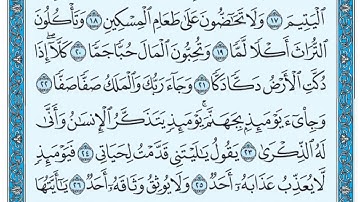 ٱلْيَتِيمَ ١٧ وَلَا تَحَٰٓضُّونَ عَلَىٰ طَعَامِ ٱلْمِسْكِينِ ١٨ وَتَأْكُلُونَ
ٱلتُّرَاثَ أَكْلًا لَّمًّا ١٩ وَتُحِبُّونَ ٱلْمَالَ حُبًّا جَمًّا ٢٠ كَلَّآ إِذَا
دُكَّتِ ٱلْأَرْضُ دَكًّا دَكًّا ٢١ وَجَآءَ رَبُّكَ وَٱلْمَلَكُ صَفًّا صَفًّا ٢٢
وَجِا۟ىٓءَ يَوْمَئِذٍۭ بِجَهَنَّمَ ۚ يَوْمَئِذٍ يَتَذَكَّرُ ٱلْإِنسَٰنُ وَأَنَّىٰ
لَهُ ٱلذِّكْرَىٰ ٢٣ يَقُولُ يَٰلَيْتَنِى قَدَّمْتُ لِحَيَاتِى ٢٤ فَيَوْمَئِذٍ
لَّا يُعَذِّبُ عَذَابَهُۥٓ أَحَدٌ ٢٥ وَلَا يُوثِقُ وَثَاقَهُۥٓ أَحَدٌ ٢٦ يَٰٓأَيَّتُهَا